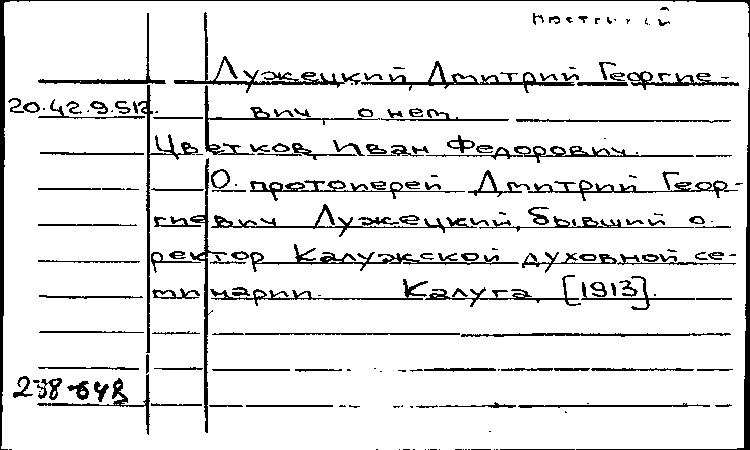 Лужецкий, Дмитрий Георгие-
20.42.9.512. вич, о нем.
Цветков, Иван Федорович.
О. протоиерей Дмитрий Геор-
гиевич Лужецкий, бывший о.
ректор Калужской духовной се-
минарии. Калуга, [1913].